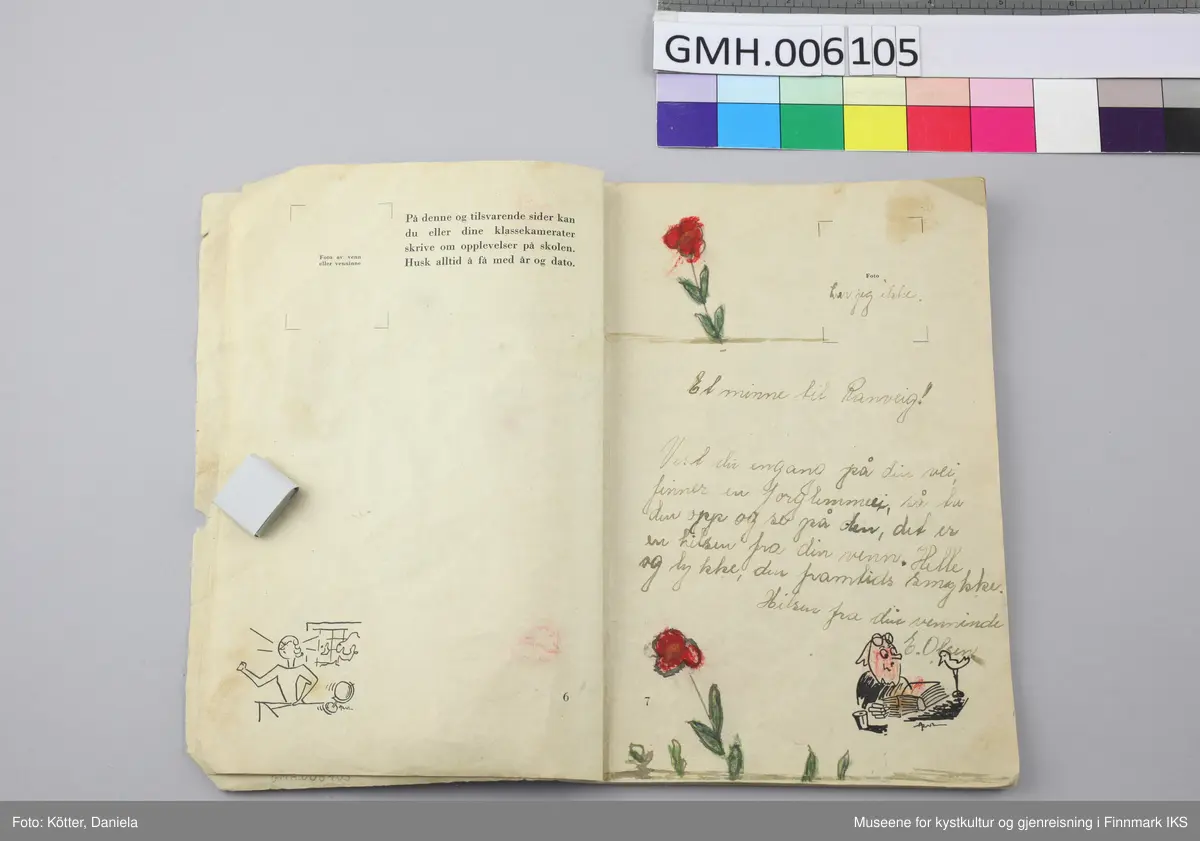 GMH.006105
På denne og tilsvarende sider kan
du eller dine klassekamerater
skrive om opplevelser på skolen.
Husk alltid å få med år og dato.
Foto av venn
eller venninne
6
Foto
har jeg ikke.
Et minne til Ranveig!
Vist du engang på din vei,
finner en forglemmeei, så ta
den opp og se på den, det er
en hilsen fra din venn. Helle
og lykke, din framtids smykke.
Hilsen fra din venninde
E. Olsen
7
GMH.006105
Foto: Kötter, Daniela
Museene for kystkultur og gjenreisning i Finnmark IKS